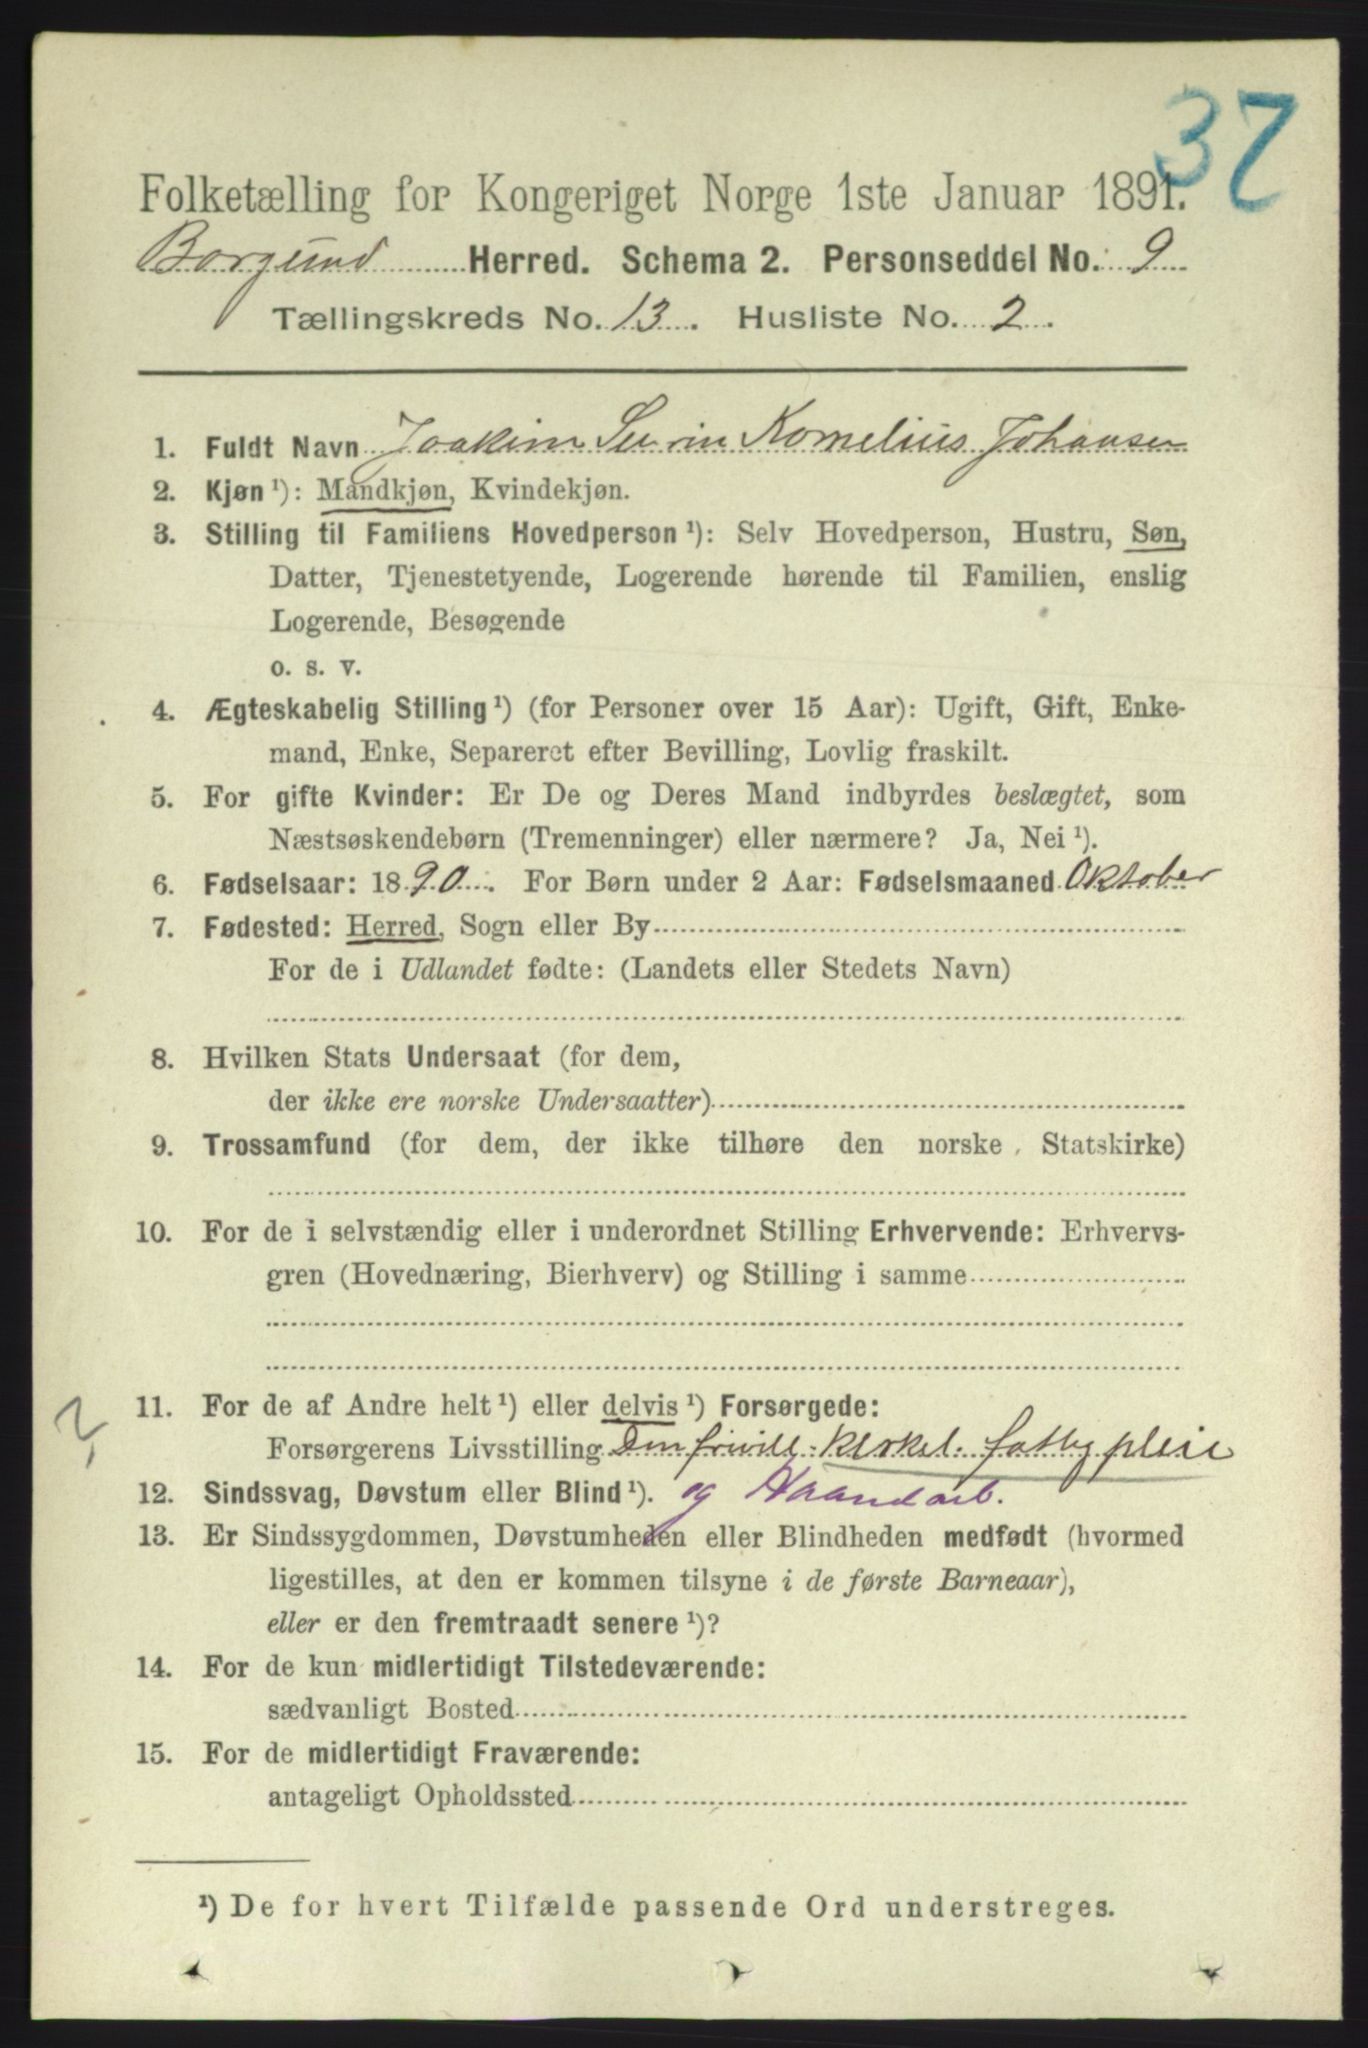 37
Folketælling for Kongeriget Norge 1ste Januar 1891.
Borgund Herred. Schema 2. Personseddel No. 9
Tællingskreds No. 13. Husliste No. 2.
1. Fuldt Navn Joakim Severin Kornelius Johansen
2. Kjøn¹): Mandkjøn, Kvindekjøn.
3. Stilling til Familiens Hovedperson¹): Selv Hovedperson, Hustru, Søn,
Datter, Tjenestetyende, Logerende hørende til Familien, enslig
Logerende, Besøgende
o. s. v.
4. Ægteskabelig Stilling¹) (for Personer over 15 Aar): Ugift, Gift, Enke-
mand, Enke, Separeret efter Bevilling, Lovlig fraskilt.
5. For gifte Kvinder: Er De og Deres Mand indbyrdes beslægtet, som
Næstsøskendebørn (Tremenninger) eller nærmere? Ja, Nei¹).
6. Fødselsaar: 1890. For Børn under 2 Aar: Fødselsmaaned Oktober
7. Fødested: Herred, Sogn eller By
For de i Udlandet fødte: (Landets eller Stedets Navn)
8. Hvilken Stats Undersaat (for dem,
der ikke ere norske Undersaatter)
9. Trossamfund (for dem, der ikke tilhøre den norske Statskirke)
10. For de i selvstændig eller i underordnet Stilling Erhvervende: Erhvervs-
gren (Hovednæring, Bierhverv) og Stilling i samme
11. For de af Andre helt¹) eller delvis¹) Forsørgede:
Forsørgerens Livsstilling Den frivill. kirkel. fattigpleie
12. Sindssvag, Døvstum eller Blind¹). og Haandarb.
13. Er Sindssygdommen, Døvstumheden eller Blindheden medfødt (hvormed
ligestilles, at den er kommen tilsyne i de første Barneaar),
eller er den fremtraadt senere¹)?
14. For de kun midlertidigt Tilstedeværende:
sædvanligt Bosted
15. For de midlertidigt Fraværende:
antageligt Opholdssted
¹) De for hvert Tilfælde passende Ord understreges.